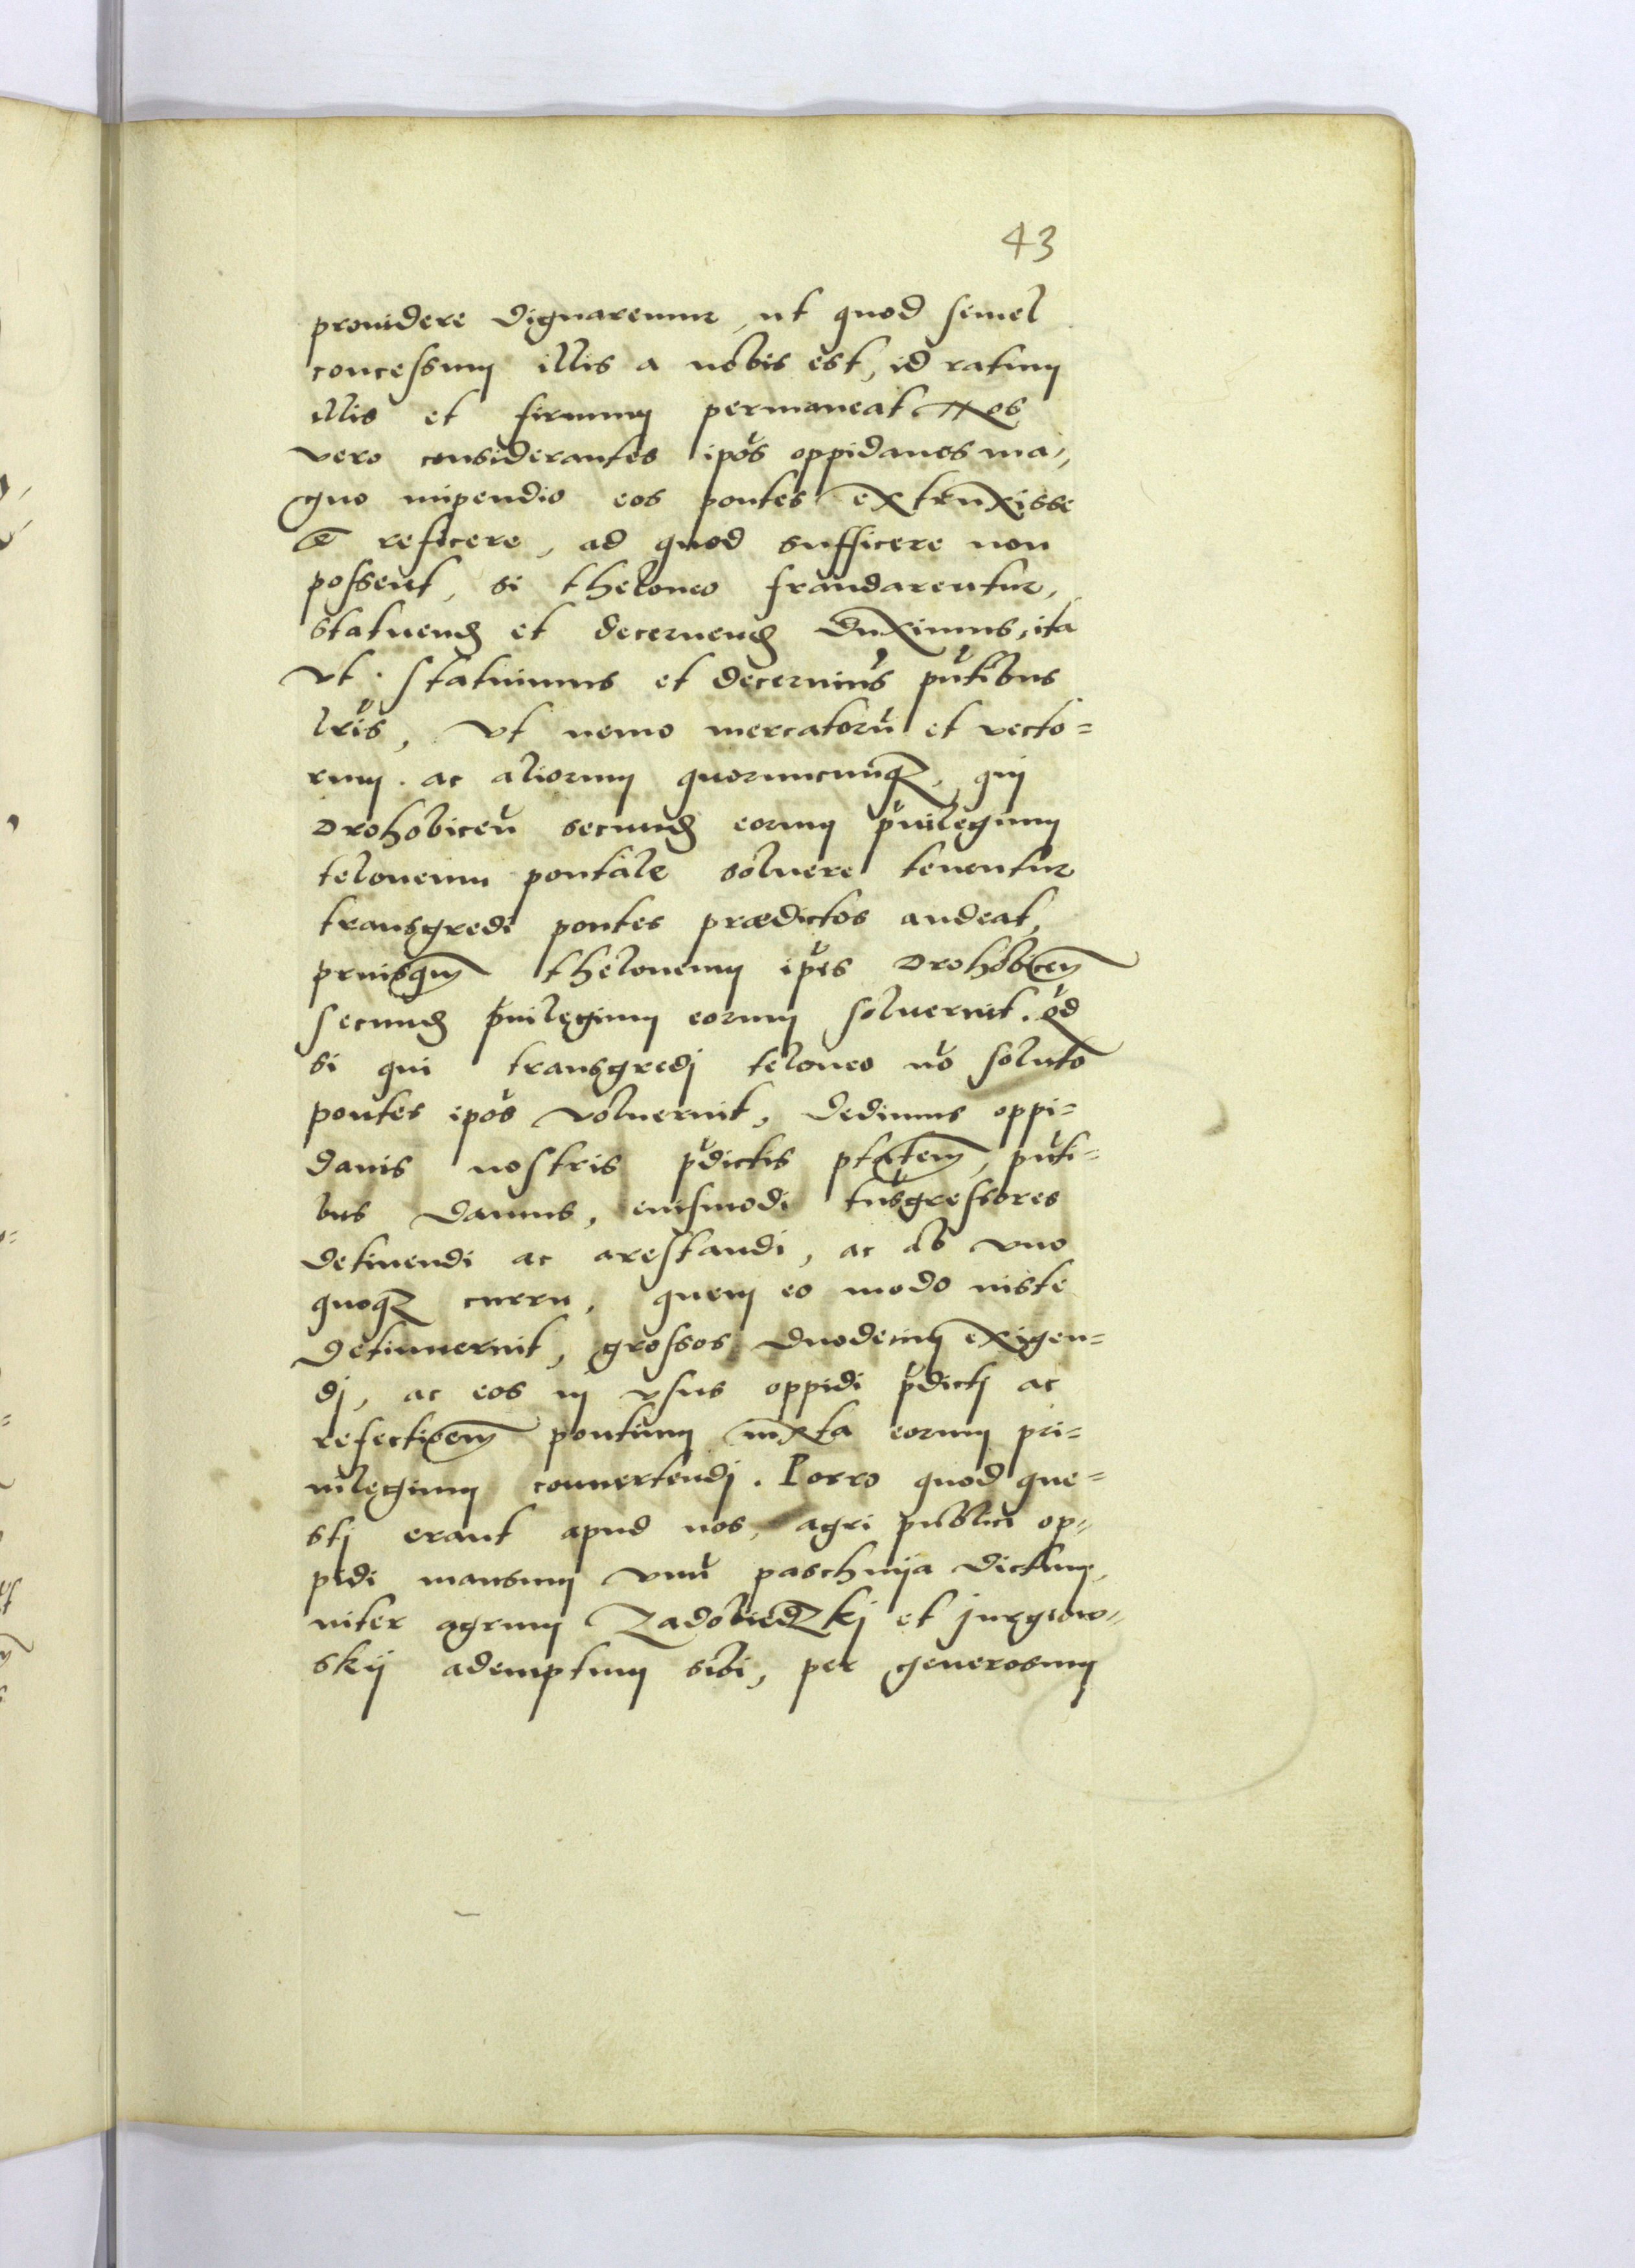 43
prouidere dignaremur, ut quod semel
concessum illis a nobis est, id ratum
illis et firmum permaneat. Nos
vero considerantes ipōs oppidanos ma,,
gno impendio eos pontes extruxisse
et reficere, ad quod sufficere non
possent, si theloneo fraudarentur,
statuend et decernend duximus, ita
vt. statuimus et decernim9 pn̄tibus
lrīs, vt nemo mercatorū et vecto=
rum. ac aliorum quorumcunqȝ, qui
Drohobiceñ secund eorum pūilegium
teloneum pontale soluere tenentur
transgredi pontes prædictos audeat,
priusqm̄ theloneum ip̄is Drohobiceñ
secund pūilegium eorum soluerint. qd̄
si qui transgredj teloneo nō soluto
pontes ipōs voluerint, dedimus oppi=
danis nostris p̄dictis ptātem, pn̄ti=
bus damus, eiusmodi tn̄sgressores
detinendi ac arestandi, ac ab vno
quoqȝ curru, quem eo modo iuste
detinuerint, grossos duodecim exigen=
dj, ac eos in vsus oppidi p̄dictj ac
refectiōem pontium iuxta eorum pri=
uilegium conuertendj. Porro quod que=
stj erant apud nos, agri publici op,,
pidi mansum vnū paschnija dictum,
inter agrum Zadobiedzkj et jurgiow,,
skij ademptum sibi, per generosum